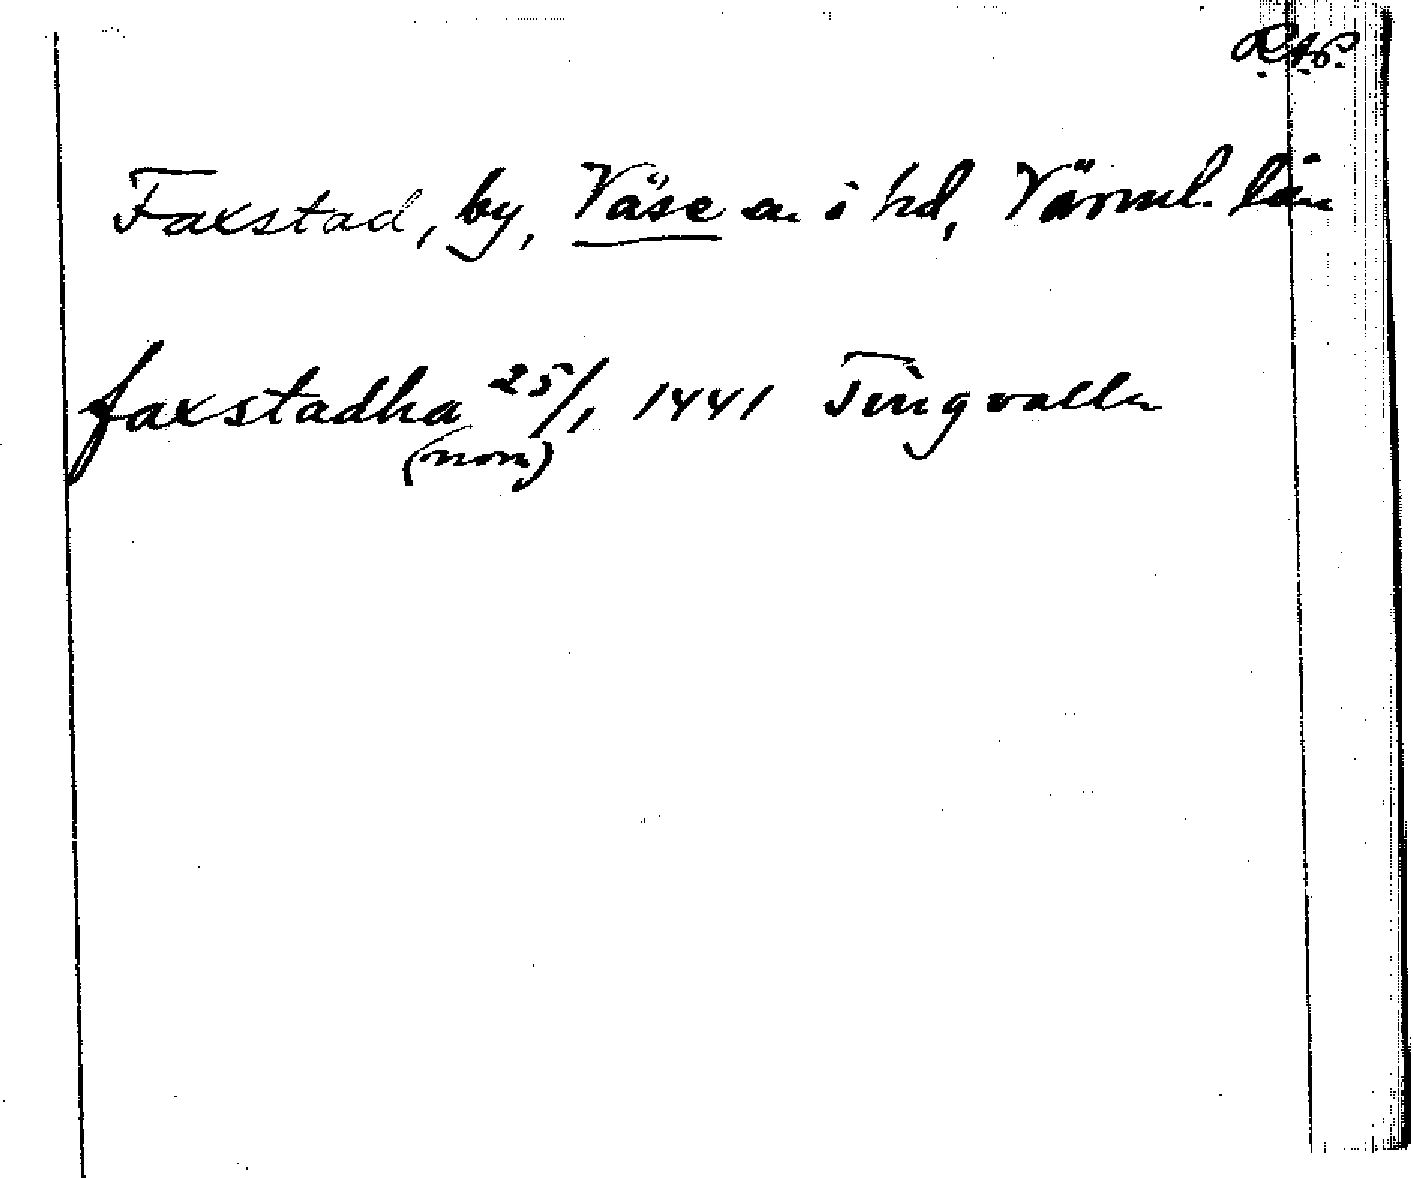 R.A.P.
Faxstad, by, Väse sn i hd, Värml. län
faxstadha 25/1 1441 Tingvalla
(nom)